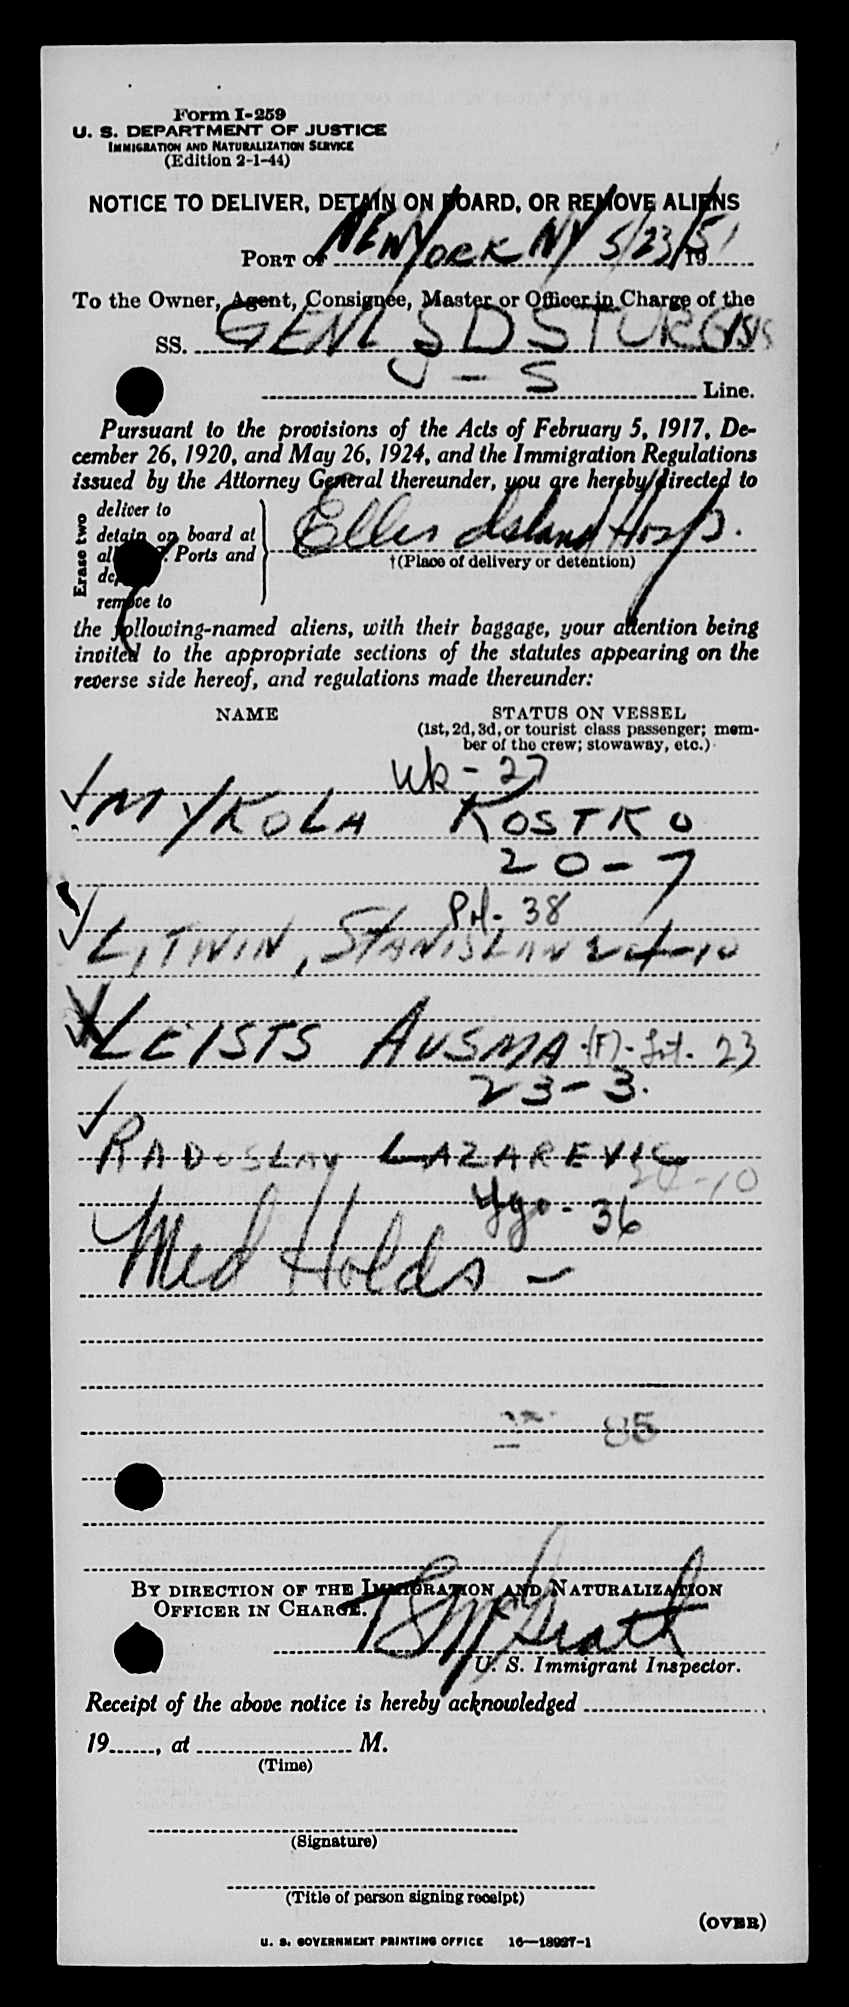 Form I-259
U. S. DEPARTMENT OF JUSTICE
IMMIGRATION AND NATURALIZATION SERVICE
(Edition 2-1-44)
NOTICE TO DELIVER, DETAIN ON BOARD, OR REMOVE ALIENS
PORT OF NEW YORK NY 5/23/51 19
To the Owner, Agent, Consignee, Master or Officer in Charge of the
SS. GENL S D STURGIS
U-S Line.
Pursuant to the provisions of the Acts of February 5, 1917, De-
cember 26, 1920, and May 26, 1924, and the Immigration Regulations
issued by the Attorney General thereunder, you are hereby directed to
Erase two
deliver to
detain on board at
all U. S. Ports and
deport
remove to
Ellis Island Hosp.
†(Place of delivery or detention)
the following-named aliens, with their baggage, your attention being
invited to the appropriate sections of the statutes appearing on the
reverse side hereof, and regulations made thereunder:
NAME STATUS ON VESSEL
(1st, 2d, 3d, or tourist class passenger; mem-
ber of the crew; stowaway, etc.)
Uk - 27
MYKOLA KOSTKO
20-7
Pol - 38
LITWIN, STANISLAW 24-10
LEISTS AUSMA (F) - Lat. 23
23-3.
RADOSLAV LAZAREVIC
24-10
Ygo - 36
Med Holds -
85
BY DIRECTION OF THE IMMIGRATION AND NATURALIZATION
OFFICER IN CHARGE.
McGrath
U. S. Immigrant Inspector.
Receipt of the above notice is hereby acknowledged
19, at M.
(Time)
(Signature)
(Title of person signing receipt)
(OVER)
U. S. GOVERNMENT PRINTING OFFICE 16—18927-1